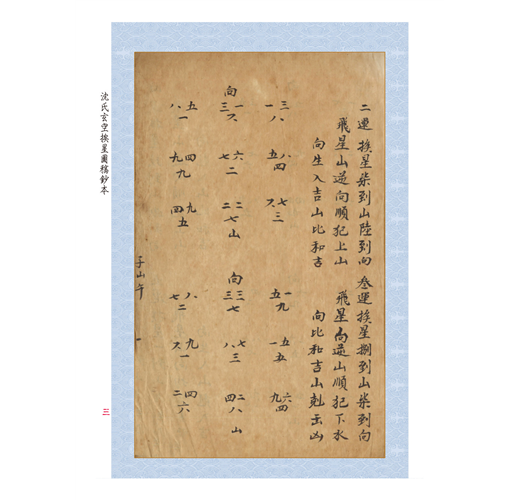 二運挨星柒到山陸到向
飛星山逆向順犯上山
向生入吉山比和吉
三一
八
八五
四
七六
三
向
一三
六
六七
二
二二
七
山
五八
一
四九
九
九四
五
叁運挨星捌到山柒到向
飛星向逆山順犯下水
向比和吉山剋出凶
一五
九
五一
五
六九
四
向
三三
七
七八
三
二四
八
山
八七
二
九六
一
四二
六
子山午
一
沈氏玄空挨星圖稿鈔本
三